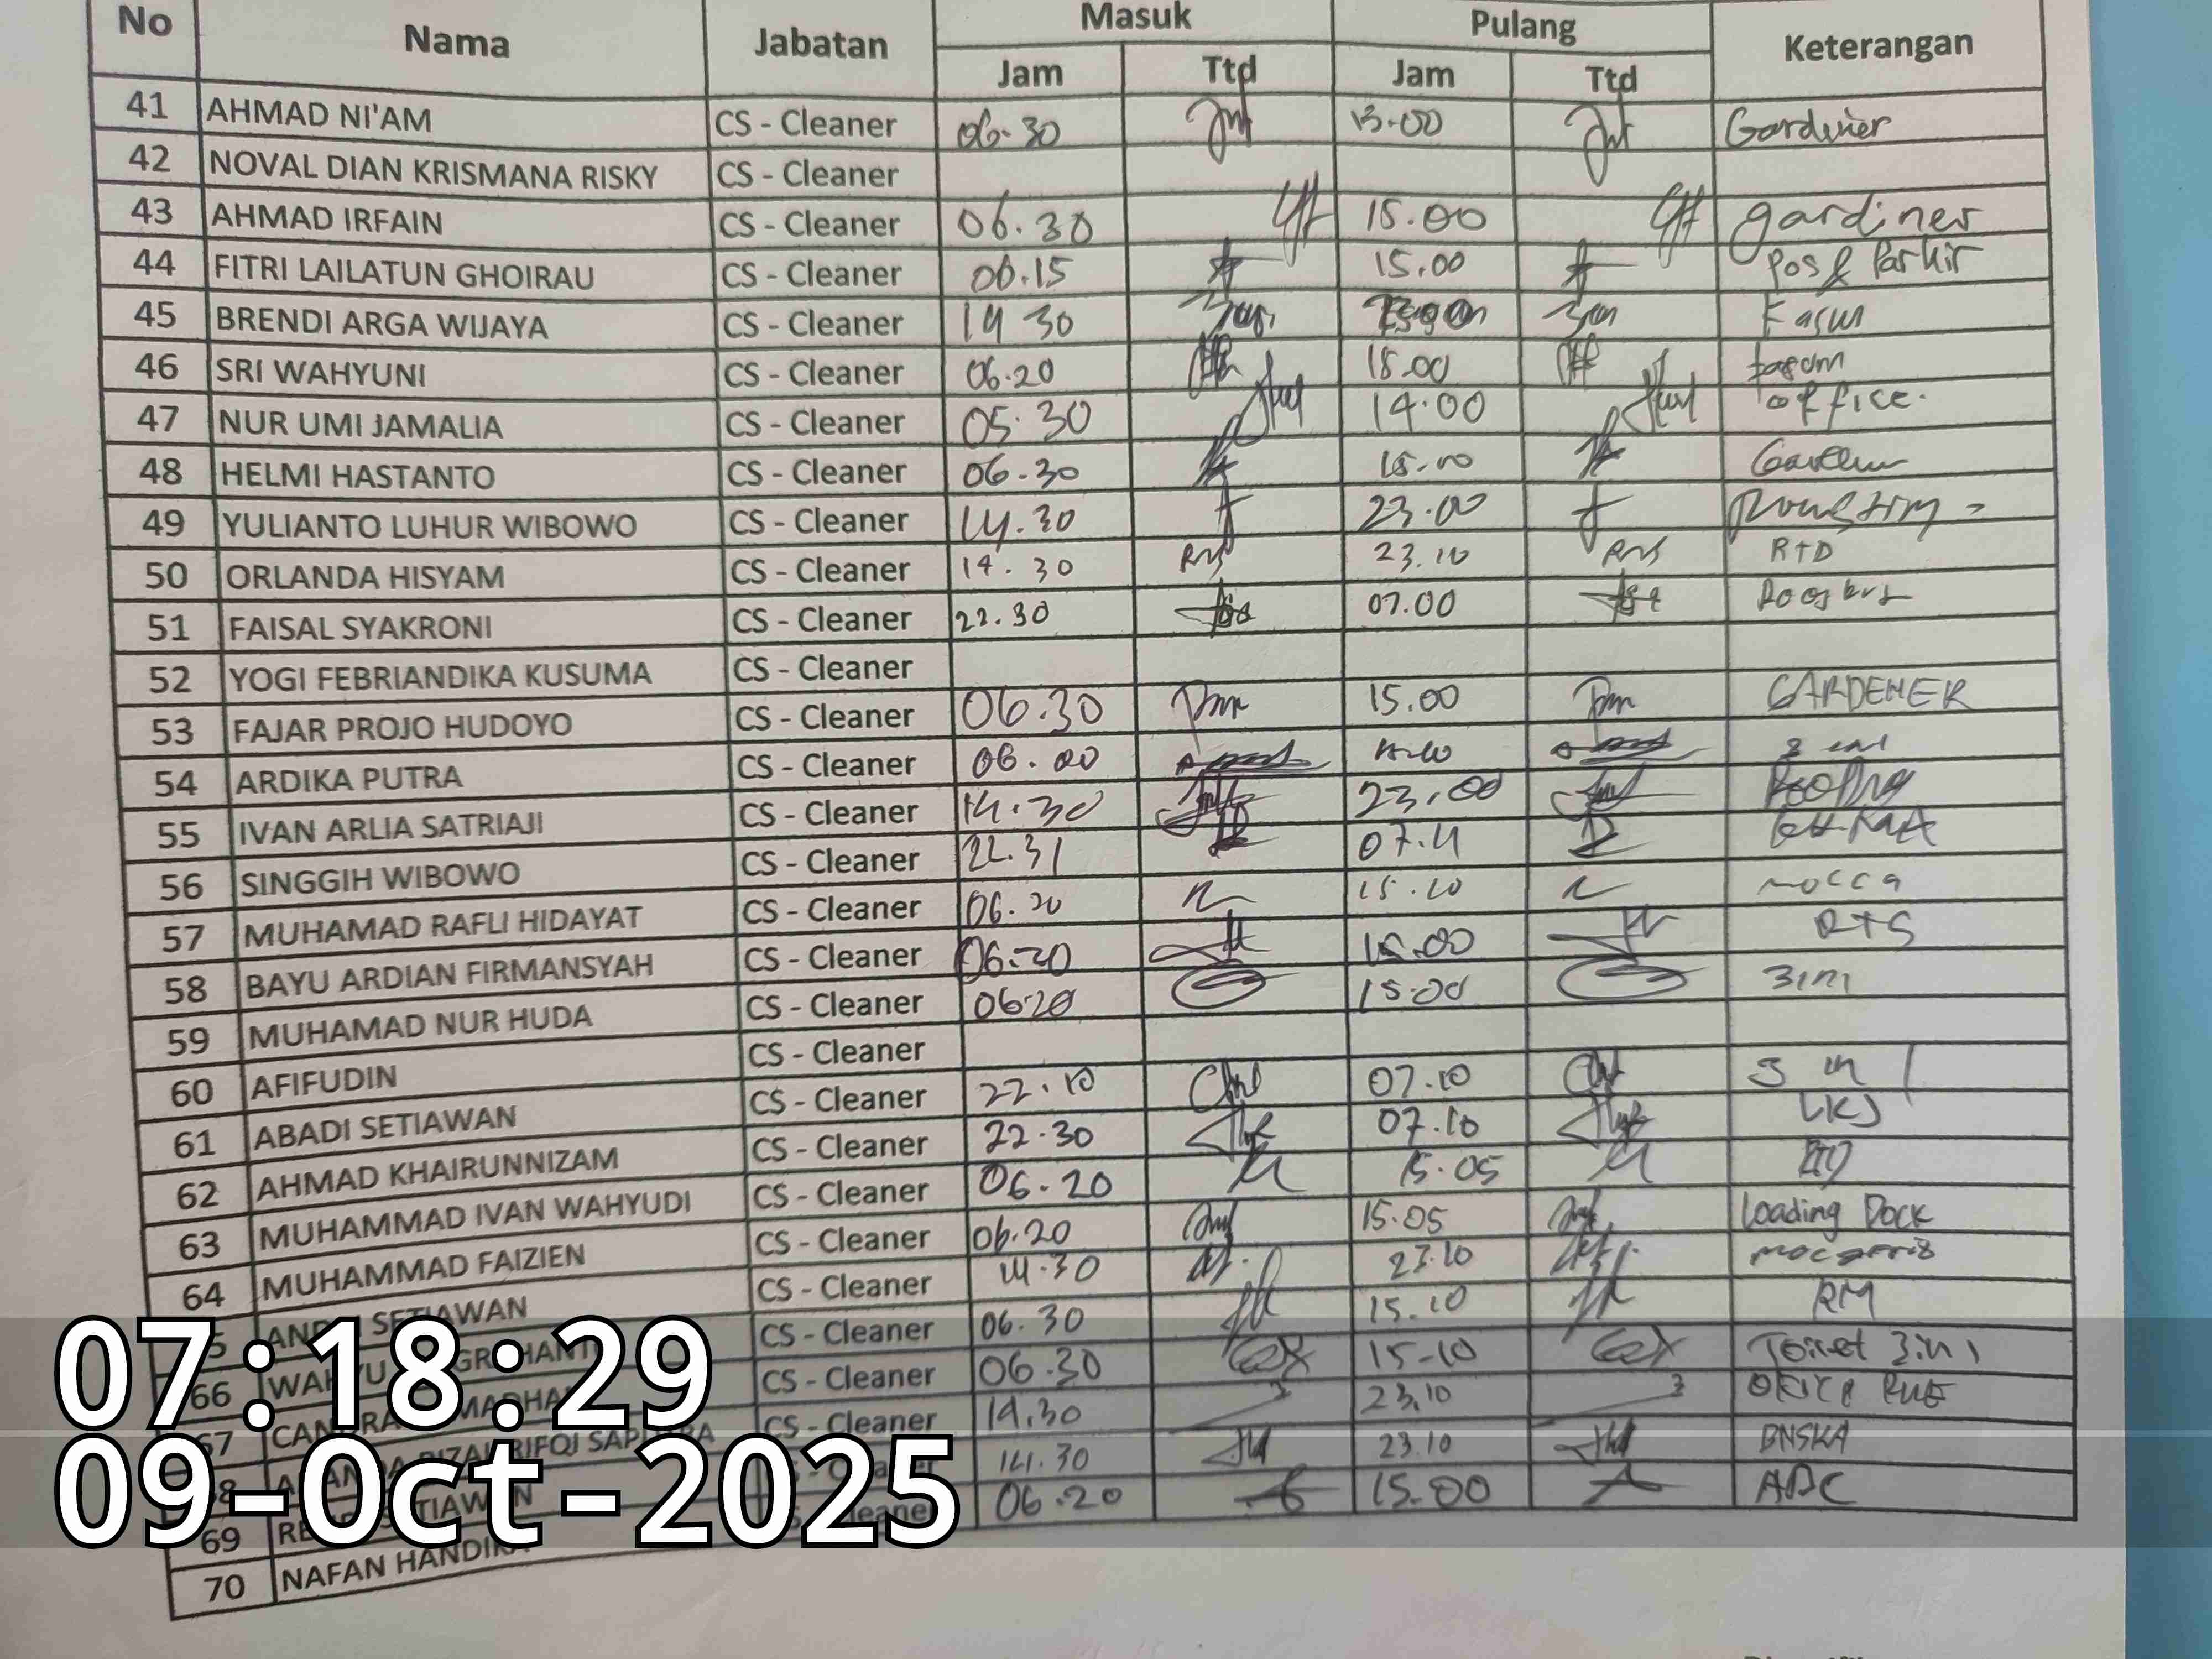 No Nama Jabatan Masuk Pulang Keterangan
Jam Ttd Jam Ttd
41 AHMAD NI'AM CS - Cleaner 06.30 13.00 Gardiner
42 NOVAL DIAN KRISMANA RISKY CS - Cleaner
43 AHMAD IRFAIN CS - Cleaner 06.30 15.00 gardiner
44 FITRI LAILATUN GHOIRAU CS - Cleaner 06.15 15.00 Pos & Parkir
45 BRENDI ARGA WIJAYA CS - Cleaner 14 30 Fasum
46 SRI WAHYUNI CS - Cleaner 06.20 15.00 fasum
47 NUR UMI JAMALIA CS - Cleaner 05.30 14.00 office.
48 HELMI HASTANTO CS - Cleaner 06.30 15.00
49 YULIANTO LUHUR WIBOWO CS - Cleaner 14.30 23.00
50 ORLANDA HISYAM CS - Cleaner 14.30 23.10 RTD
51 FAISAL SYAKRONI CS - Cleaner 22.30 07.00
52 YOGI FEBRIANDIKA KUSUMA CS - Cleaner
53 FAJAR PROJO HUDOYO CS - Cleaner 06.30 15.00 GARDENER
54 ARDIKA PUTRA CS - Cleaner 06.00
55 IVAN ARLIA SATRIAJI CS - Cleaner 14.30 23.00
56 SINGGIH WIBOWO CS - Cleaner 22.31 07.11
57 MUHAMAD RAFLI HIDAYAT CS - Cleaner 06.30 15.10 mocca
58 BAYU ARDIAN FIRMANSYAH CS - Cleaner 06.20 15.00 RTS
59 MUHAMAD NUR HUDA CS - Cleaner 06.20 15.00 3in1
60 AFIFUDIN CS - Cleaner
61 ABADI SETIAWAN CS - Cleaner 22.10 07.10 3 in 1
62 AHMAD KHAIRUNNIZAM CS - Cleaner 22.30 07.10 LKJ
63 MUHAMMAD IVAN WAHYUDI CS - Cleaner 06.20 15.05
64 MUHAMMAD FAIZIEN CS - Cleaner 06.20 15.05 Loading Dock
SETIAWAN CS - Cleaner 14.30 23.10
66 CS - Cleaner 06.30 15.10 RM
67 CS - Cleaner 06.30 15-10 Toilet 3in1
CS - Cleaner 14.30 23.10
69 SETIAWAN 14.30 23.10
70 NAFAN HANDIKA Cleaner 06.20 15.00 ABC
07:18:29
09-Oct-2025